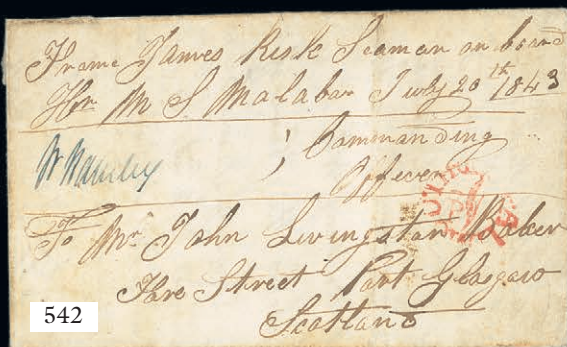 Frame James Risk Seaman on board
Her M S Malabar July 20th 1843
Commanding
Officer
To Mr John Livingston Baker
Fore Street Port Glasgow
Scotland
542